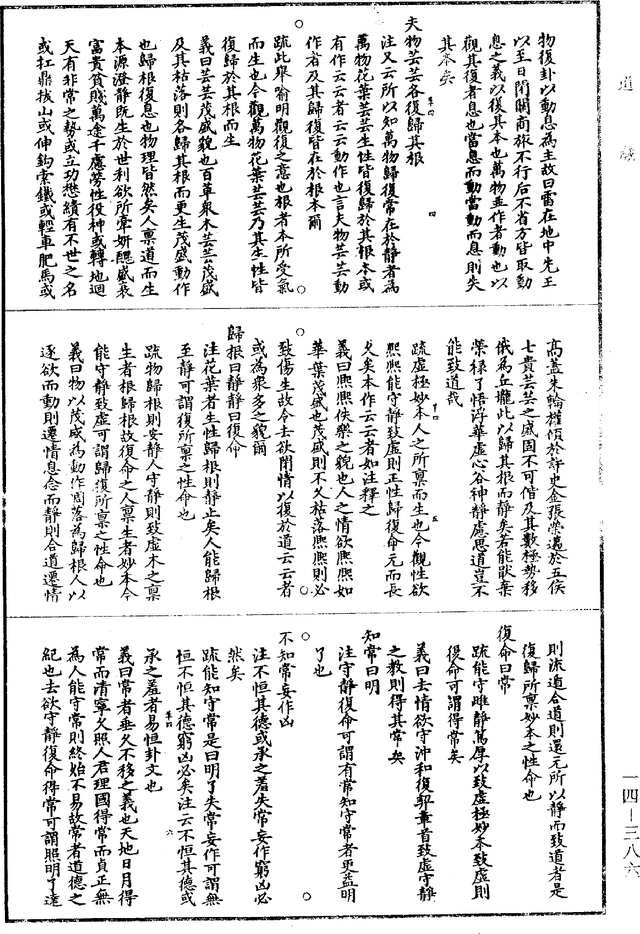 道藏
物復卦以動息為主故曰雷在地中先王
以至日閉關商旅不行后不省方皆取動
息之義以復其本也萬物並作者動也以
觀其復者息也當息而動當動而息則失
其本矣
夫物芸芸各復歸其根
注又云所以知萬物歸復常在於靜者為
萬物花葉芸芸生性皆復歸於其根本或
有作云云者云云動作也言夫物芸芸動
作者及其歸復皆在於根本爾
疏此舉喻明觀復之意也根者本所受氣
而生也今觀萬物花葉芸芸乃其生性皆
復歸於其根而生
義曰芸芸茂盛貌也百草衆木芸芸茂盛
及其枯落則各歸其根而更生茂盛動作
也歸根復息也物理皆然矣人稟道而生
本源澄靜既生於世利欲所牽妍醜盛衰
富貴貧賤萬途千慮勞性役神或轉地迴
天有非常之勢或立功懋績有不世之名
或扛鼎拔山或伸鈎索鐵或輕車肥馬或
高蓋朱輪權傾於許史金張榮邁於五侯
七貴芸芸之盛固不可偕及其數極勢移
俄為丘壠此以歸其根而靜矣若能猒棄
榮祿了悟浮華虛心谷神靜慮思道豈不
能致道哉
疏虛極妙本人之所稟而生也今觀性欲
熈熈能守靜致虛則正性歸復命元而長
久矣本作云云者如注釋之
義曰熈熈佚樂之貌也人之情欲熈熈如
華葉茂盛也茂盛則不久枯落熈熈則必
致傷生故令去欲閑情以復於道云云者
或為衆多之貌爾
歸根曰靜靜曰復命
注花葉者生性歸根則靜止矣人能歸根
至靜可謂復所稟之性命也
疏物歸根則安靜人守靜則致虛木之稟
生者根歸根故復命之人稟生者妙本今
能守靜致虛可謂歸復所稟之性命也
義曰物以茂盛為動作凋落為歸根人以
逐欲而動則遷情息念而靜則合道遷情
則流遁合道則還元所以靜而致道者是
復歸所稟妙本之性命也
復命曰常
疏能守雌靜篤厚以致虛極妙本致虛則
復命可謂得常矣
義曰去情欲守沖和復契章首致虛守靜
之教則得其常矣
知常曰明
注守靜復命可謂有常知守常者更益明
了也
不知常妄作凶
注不恒其德或承之羞失常妄作窮凶必
然矣
疏能知守常是曰明了失常妄作可謂無
恒不恒其德窮凶必矣注云不恒其德或
承之羞者易恒卦文也
義曰常者垂久不移之義也天地日月得
常而清寧久照人君理國得常而貞正無
為人能守常則終始不易故常者道德之
紀也去欲守靜復命得常可謂照明了達
一四—三八六